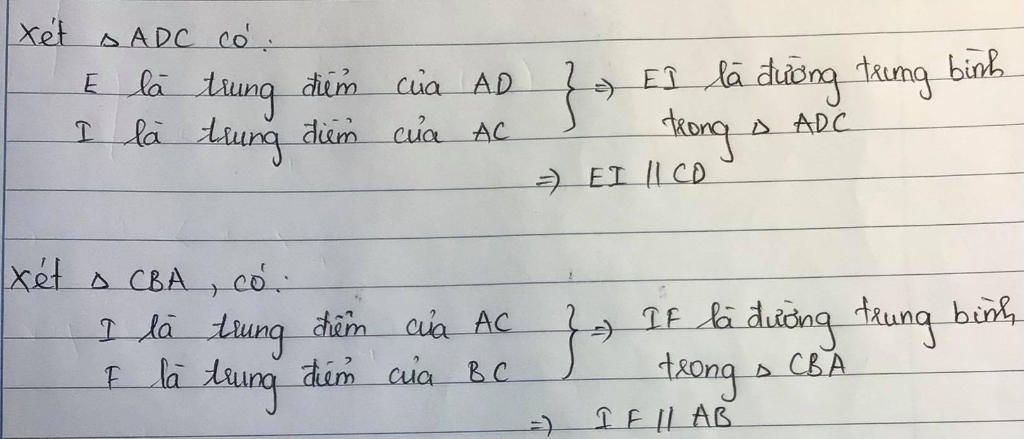 Xét Δ ADC có:
E là trung điểm của AD } ⇒ EI là đường trung bình
I là trung điểm của AC trong Δ ADC
⇒ EI // CD
Xét Δ CBA, có:
I là trung điểm của AC } ⇒ IF là đường trung bình
F là trung điểm của BC trong Δ CBA
⇒ IF // AB